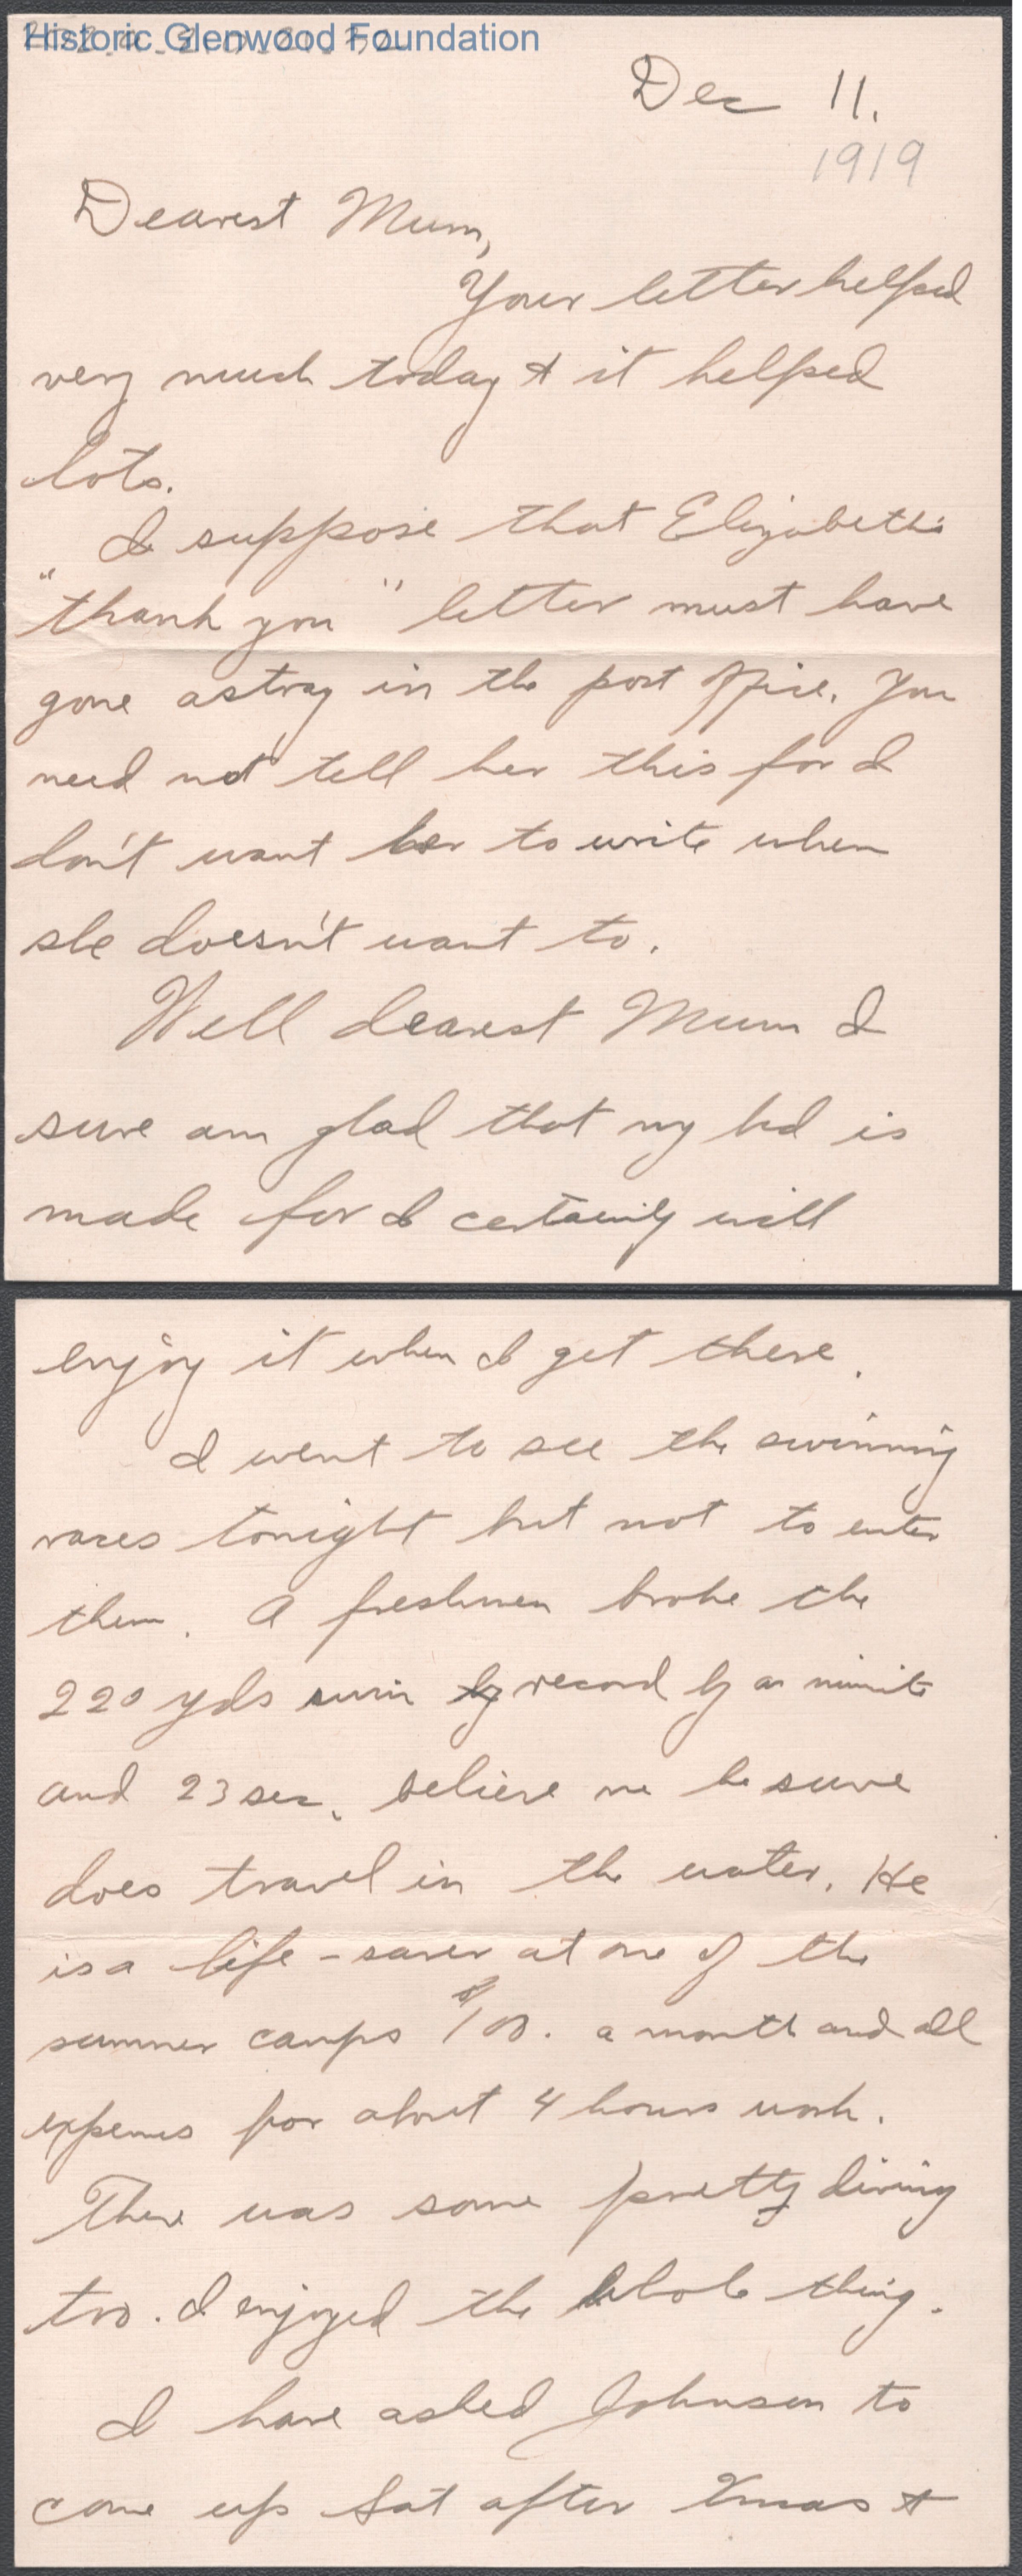 Historic Glenwood Foundation
Dec 11.
1919
Dearest Mum,
Your letter helped
very much today & it helped
lots.
I suppose that Elizabeth's
"thank you" letter must have
gone astray in the post office. You
need not tell her this for I
don't want her to write when
she doesn't want to.
Well dearest Mum I
sure am glad that my bed is
made for I certainly will
enjoy it when I get there.
I went to see the swimming
races tonight but not to enter
them. A freshmen broke the
220 yds swim by record by a minite
and 23 sec. believe me he sure
does travel in the water. He
is a life-saver at one of the
summer camps $100. a month and all
expenses for about 4 hours work.
There was some pretty diving
too. I enjoyed the whole thing.
I have asked Johnson to
come up Sat after Xmas &